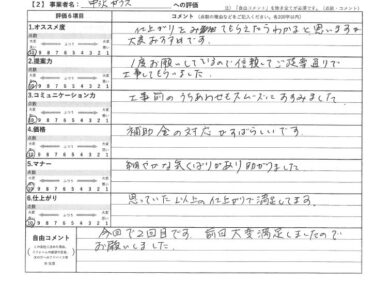 【2】 事業者名： 中沢ガラス への評価
評価6項目
コメント （点数の理由などをご記入ください。各200字以内）
1.オススメ度
点数
大変良い ふつう 大変悪い
10 9 8 7 6 5 4 3 2 1
仕上がりをみてもらえたらわかると思いますが
大変おすすめです。
2.提案力
点数
10 9 8 7 6 5 4 3 2 1
1度お願いしているので信頼してご提案通りで
工事してもらいました。
3.コミュニケーション力
点数
10 9 8 7 6 5 4 3 2 1
工事前のうちあわせもスムーズにおすみました
4.価格
点数
10 9 8 7 6 5 4 3 2 1
補助金の対応がすばらしいです
5.マナー
点数
10 9 8 7 6 5 4 3 2 1
細やかな気くばりがあり助かりました
6.仕上がり
点数
10 9 8 7 6 5 4 3 2 1
思っていた以上の仕上がりで満足してます。
自由コメント
今回で2回目です。前回大変満足しましたので
お願いしました。